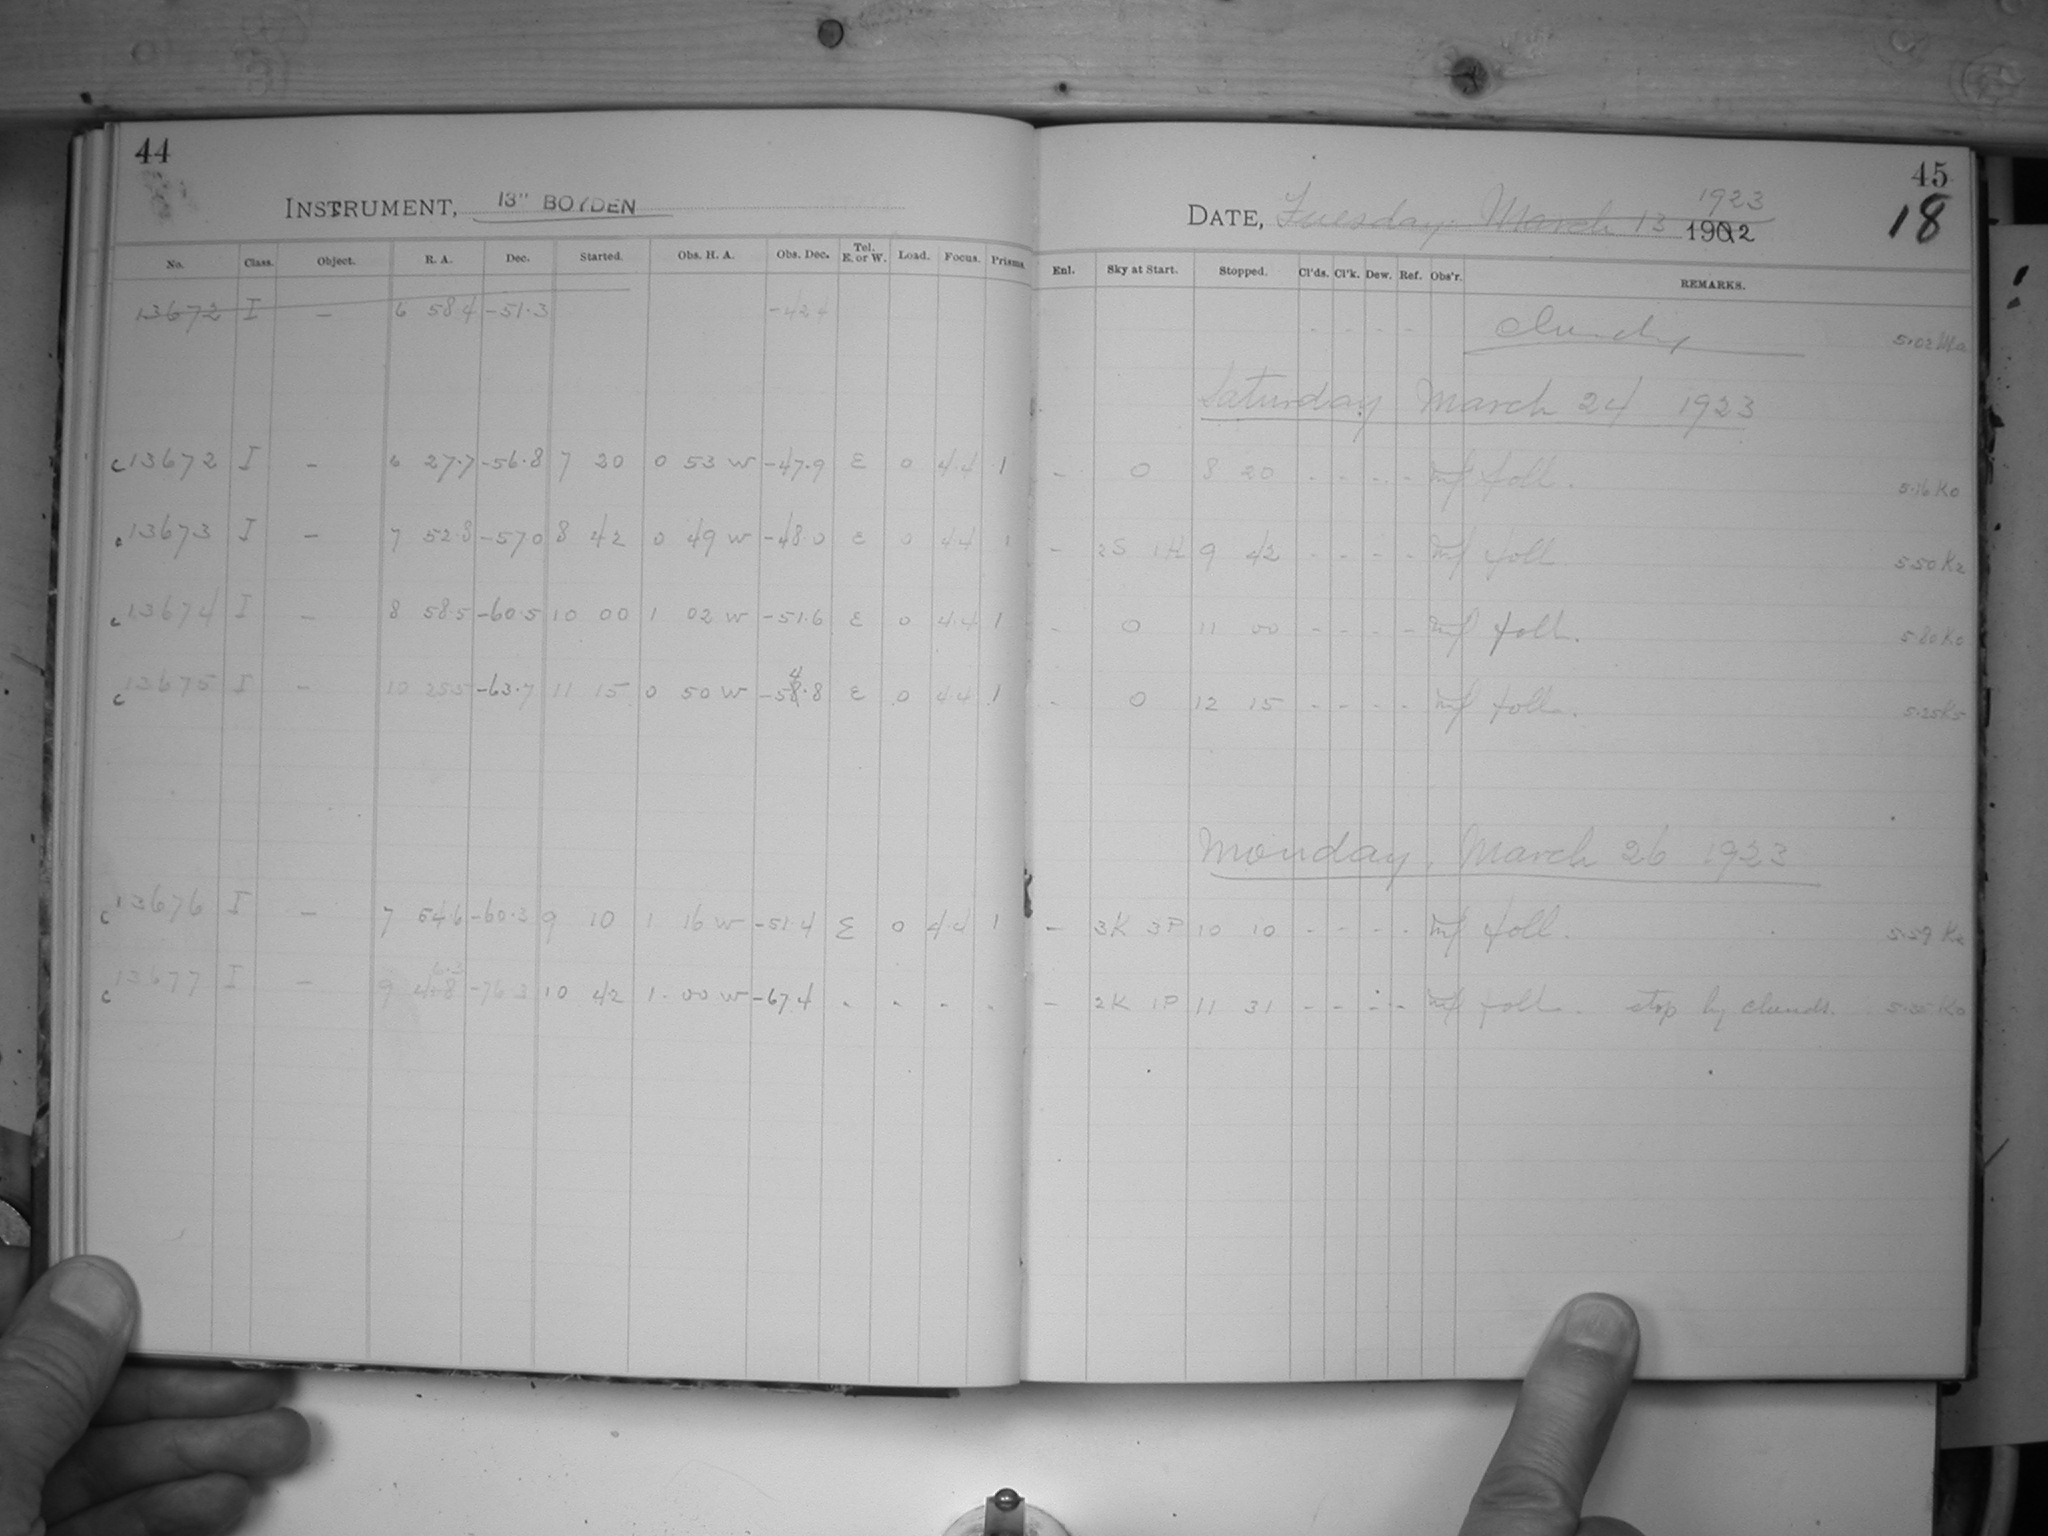 44
INSTRUMENT, 13" BOYDEN
No. Class. Object. R. A. Dec. Started. Obs. H. A. Obs. Dec. Tel. E. or W. Load. Focus. Prisms.
13672 I - 6 58.4 -51.3 -42.4
c13672 I - 6 27.7 -56.8 7 20 0 53 W -47.9 E 0 4.4 1
c13673 I - 7 52.8 -57.0 8 42 0 49 W -48.0 E 0 4.4 1
c13674 I - 8 58.5 -60.5 10 00 1 02 W -51.6 E 0 4.4 1
c13675 I - 10 25.5 -63.7 11 15 0 50 W -54.8 E 0 4.4 1
c13676 I - 7 54.6 -60.3 9 10 1 16 W -51.4 E 0 4.4 1
c13677 I - 9 -76.3 10 42 1 00 W -67.4 - - - -
45
18
DATE, Tuesday March 13 1923 1902
Enl. Sky at Start. Stopped. Cl'ds. Cl'k. Dew. Ref. Obs'r. REMARKS.
- - - - Cloudy 5.02
Saturday March 24 1923
- 0 8 20 - - - - foll. 5.16 K0
- 2S 1K 9 42 - - - - foll 5.50 K2
- 0 11 00 - - - - foll. K0
- 0 12 15 - - - - foll. 5.25 K5
Monday, March 26 1923
- 3K 3P 10 10 - - - - foll. 5.59
- 2K 1P 11 31 - - - - foll. stop by clouds. K0